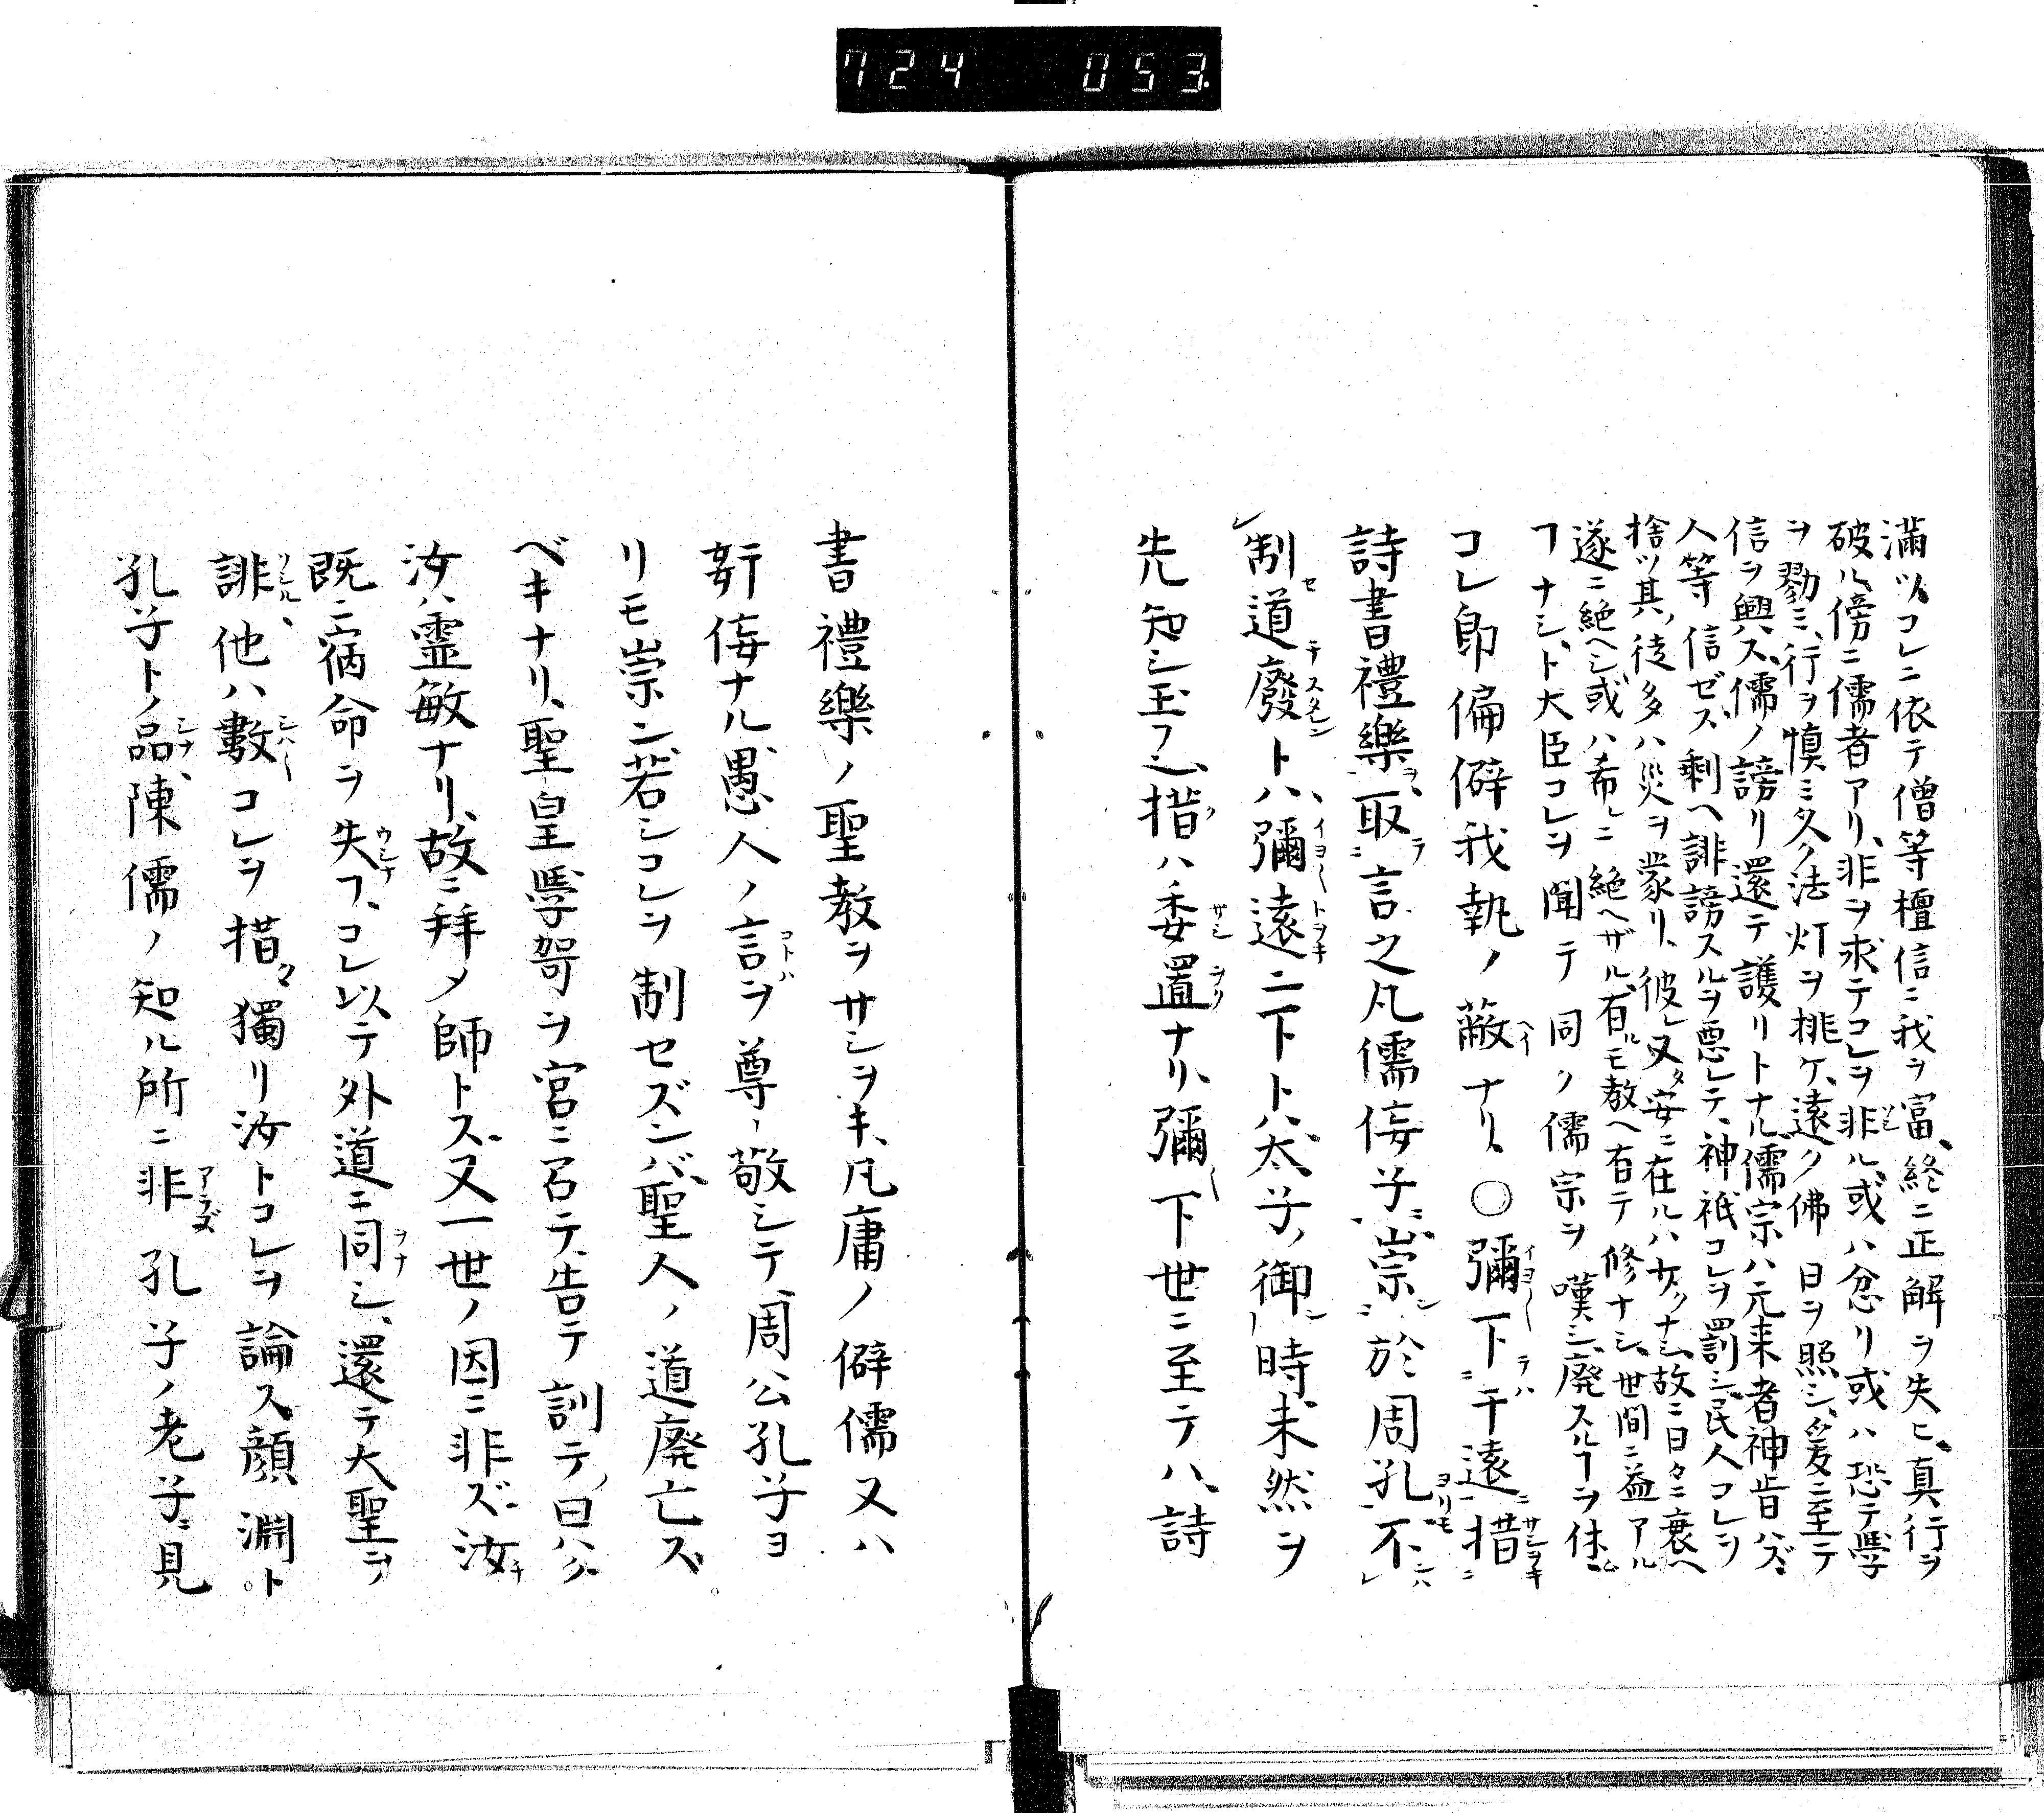 724 053
満ツ、コレニ依テ僧等檀信ニ我ヲ富、終ニ正解ヲ失ヒ、真行ヲ
破ル、傍ニ儒者アリ、非ヲ求テコレヲ非ル、或ハ忿リ或ハ恐テ學
ヲ勠ミ、行ヲ慎ミ、久ク法灯ヲ挑ケ、遠ク佛日ヲ照シ、爰ニ至テ
信ヲ興ス、儒ノ謗リ還テ護リトナル、儒宗ハ元来者神皆ハズ、
人等信ゼズ、剰ヘ誹謗スルヲ悪レテ、神祇コレヲ罰シ、民人コレヲ
捨ツ、其徒多ハ災ヲ蒙リ、彼レ又タ安ニ在ルハナシ、故ニ日々ニ衰ヘ
遂ニ絶ヘシ、或ハ希レニ絶ヘザル、有ルモ教ヘ有テ修ナシ、世間ニ益アル
ヿナシ、ト大臣コレヲ聞テ同ク儒宗ヲ嘆シ、廃スルヿヲ休ム
コレ即偏僻我執ノ蔽ナリ、○彌下テハ于遠ニ措サシヲキ
詩書禮樂ヲ、取ラ言之凡儒侫子ニ、崇シ於周孔ヨリモ、不ンハ
制セ道廢テスタレントハ、彌遠ニ下トハ、太子ノ御時、未然ヲ
先知シ玉フ也、措クハ委置ナリ、彌下世ニ至テハ、詩
書禮樂ノ聖教ヲサシヲキ、凡庸ノ僻儒又ハ
姧侫ナル愚人ノ言ヲ尊敬シテ、周公孔子ヨ
リモ崇ン、若シコレヲ制セズンバ、聖人ノ道廃亡ス
ベキナリ、聖皇學哿ヲ宮ニ召テ、告テ訓テ曰ハク、
汝ハ霊敏ナリ、故ニ拜メ師トス、又一世ノ因ニ非ズ、汝
既ニ病命ヲ失フ、コレ以テ外道ニ同シ、還テ大聖ヲ
誹ル、他ハ數コレヲ措ク、獨リ汝トコレヲ論ス、顔淵ト
孔子トノ品、陳儒ノ知ル所ニ非ズ、孔子ノ老子ニ見